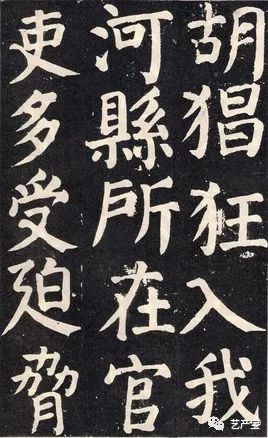 胡猖狂入我
河縣所在官
吏多受廹脅
艺产宝